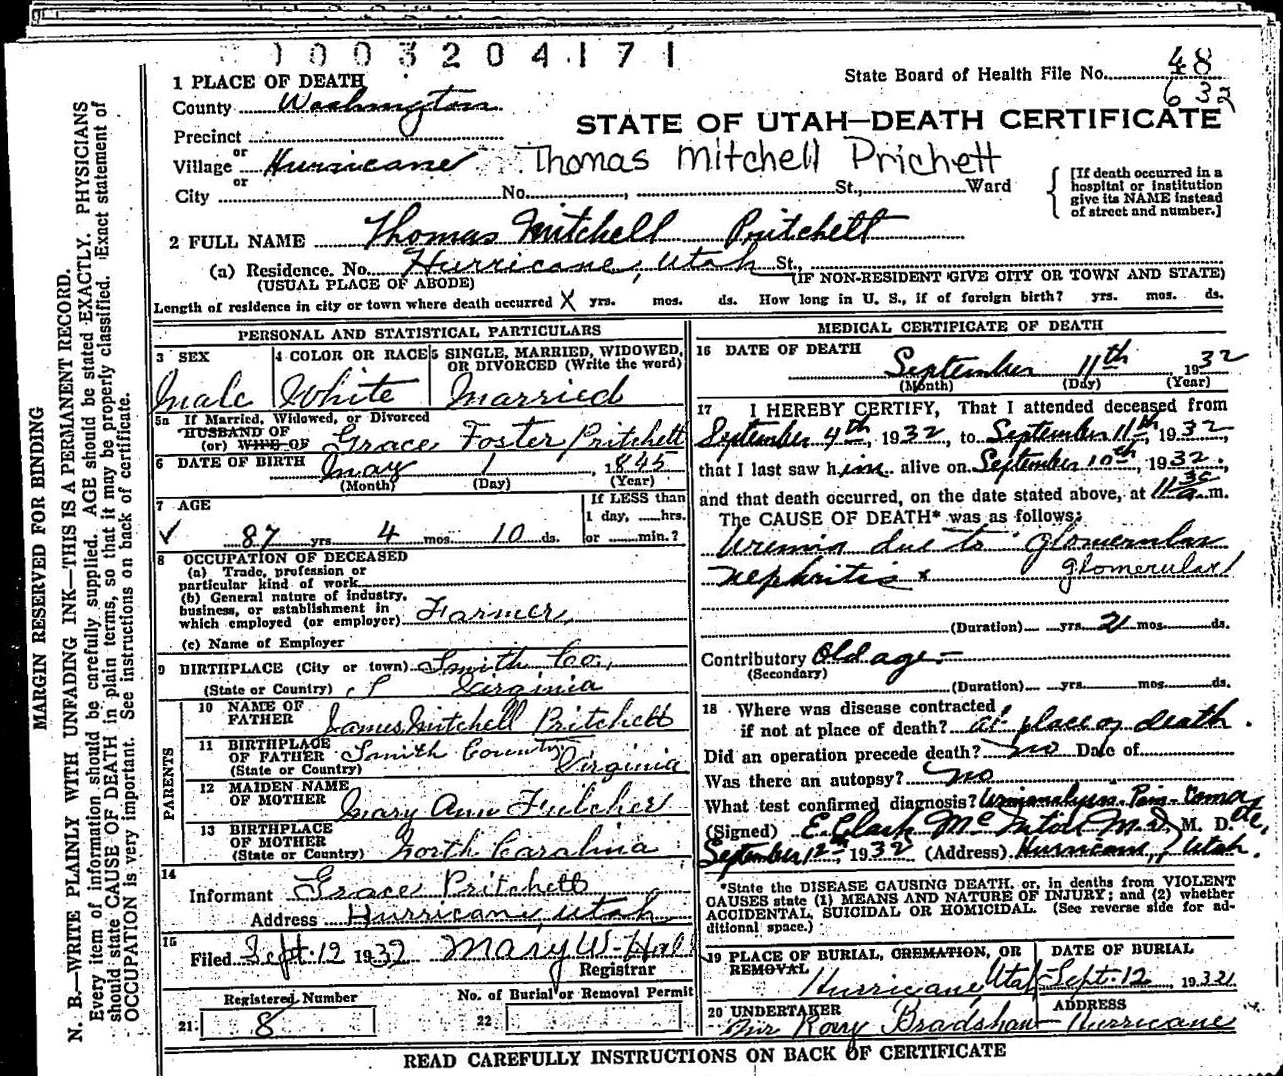 1003204171
State Board of Health File No. 48
632
1 PLACE OF DEATH
County Washington
STATE OF UTAH—DEATH CERTIFICATE
Precinct
or
Village Hurricane Thomas Mitchell Prichett
or
City No. , St., Ward
[If death occurred in a hospital or institution give its NAME instead of street and number.]
2 FULL NAME Thomas Mitchell Pritchett
(a) Residence. No. Hurricane, Utah St.,
(USUAL PLACE OF ABODE) (IF NON-RESIDENT GIVE CITY OR TOWN AND STATE)
Length of residence in city or town where death occurred X yrs. mos. ds. How long in U. S., if of foreign birth? yrs. mos. ds.
PERSONAL AND STATISTICAL PARTICULARS
3 SEX 4 COLOR OR RACE 5 SINGLE, MARRIED, WIDOWED,
OR DIVORCED (Write the word)
Male White Married
5a If Married, Widowed, or Divorced
HUSBAND OF
(or) WIFE OF Grace Foster Pritchett
6 DATE OF BIRTH May 1, 1845
(Month) (Day) (Year)
7 AGE If LESS than
1 day, hrs.
87 yrs. 4 mos. 10 ds. or min.?
8 OCCUPATION OF DECEASED
(a) Trade, profession or
particular kind of work
(b) General nature of industry,
business, or establishment in
which employed (or employer) Farmer
(c) Name of Employer
9 BIRTHPLACE (City or town) Smith Co,
(State or Country) Virginia
PARENTS
10 NAME OF
FATHER James Mitchell Pritchett
11 BIRTHPLACE
OF FATHER Smith County
(State or Country) Virginia
12 MAIDEN NAME
OF MOTHER Mary Ann Fulcher
13 BIRTHPLACE
OF MOTHER
(State or Country) North Carolina
14
Informant Grace Pritchett
Address Hurricane, Utah
15
Filed Sept. 12 1932 Mary W. Hall
Registrar
Registered Number No. of Burial or Removal Permit
21. 8 22
MEDICAL CERTIFICATE OF DEATH
16 DATE OF DEATH
September 11th 1932
(Month) (Day) (Year)
17 I HEREBY CERTIFY, That I attended deceased from
September 4th, 1932, to September 11th, 1932,
that I last saw him alive on September 10th, 1932,
and that death occurred, on the date stated above, at 11:30 a.m.
The CAUSE OF DEATH* was as follows:
Uremia due to glomerular
nephritis x glomerular
(Duration) yrs. 2 mos. ds.
Contributory Old age
(Secondary)
(Duration) yrs. mos. ds.
18 Where was disease contracted
if not at place of death? at place of death.
Did an operation precede death? no Date of
Was there an autopsy? no
What test confirmed diagnosis? Urinanalysis. Pain - Coma
(Signed) E. Clark McIntire M.D., M. D.
September 12th, 1932 (Address) Hurricane, Utah.
*State the DISEASE CAUSING DEATH, or, in deaths from VIOLENT
CAUSES state (1) MEANS AND NATURE OF INJURY; and (2) whether
ACCIDENTAL, SUICIDAL OR HOMICIDAL. (See reverse side for ad-
ditional space.)
19 PLACE OF BURIAL, CREMATION, OR
REMOVAL
Hurricane, Utah
DATE OF BURIAL
Sept-12 1932
20 UNDERTAKER ADDRESS
Ray Bradshaw Hurricane
READ CAREFULLY INSTRUCTIONS ON BACK OF CERTIFICATE
MARGIN RESERVED FOR BINDING
N. B.—WRITE PLAINLY WITH UNFADING INK—THIS IS A PERMANENT RECORD.
Every item of information should be carefully supplied. AGE should be stated EXACTLY. PHYSICIANS
should state CAUSE OF DEATH in plain terms, so that it may be properly classified. Exact statement of
OCCUPATION is very important. See instructions on back of certificate.